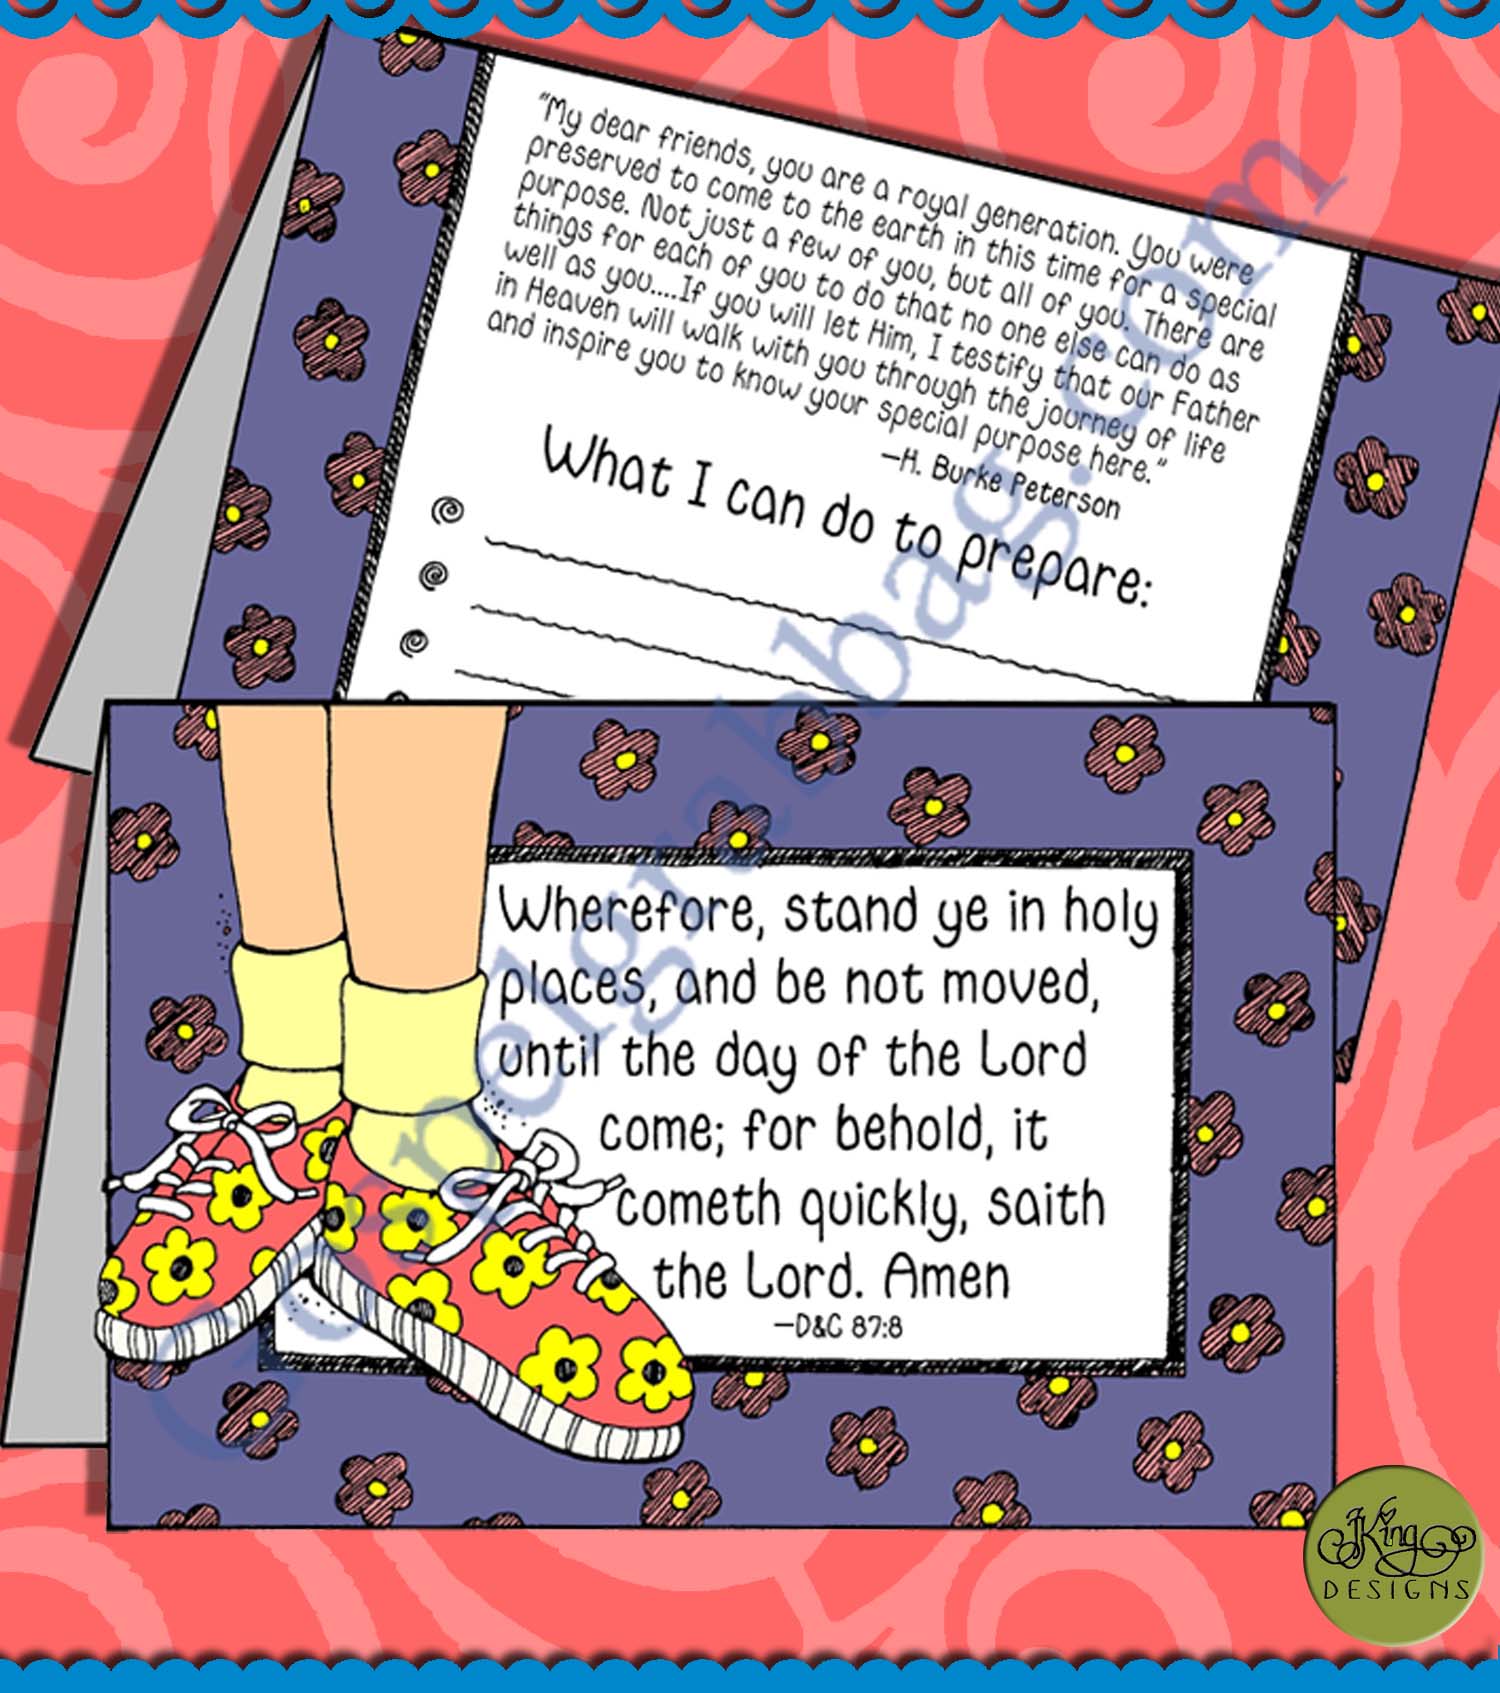 “My dear friends, you are a royal generation. You were
preserved to come to the earth in this time for a special
purpose. Not just a few of you, but all of you. There are
things for each of you to do that no one else can do as
well as you....If you will let Him, I testify that our Father
in Heaven will walk with you through the journey of life
and inspire you to know your special purpose here.”
—H. Burke Peterson
What I can do to prepare:
Wherefore, stand ye in holy
places, and be not moved,
until the day of the Lord
come; for behold, it
cometh quickly, saith
the Lord. Amen
—D&C 87:8
Gospelgrabbag.com
JKing
DESIGNS